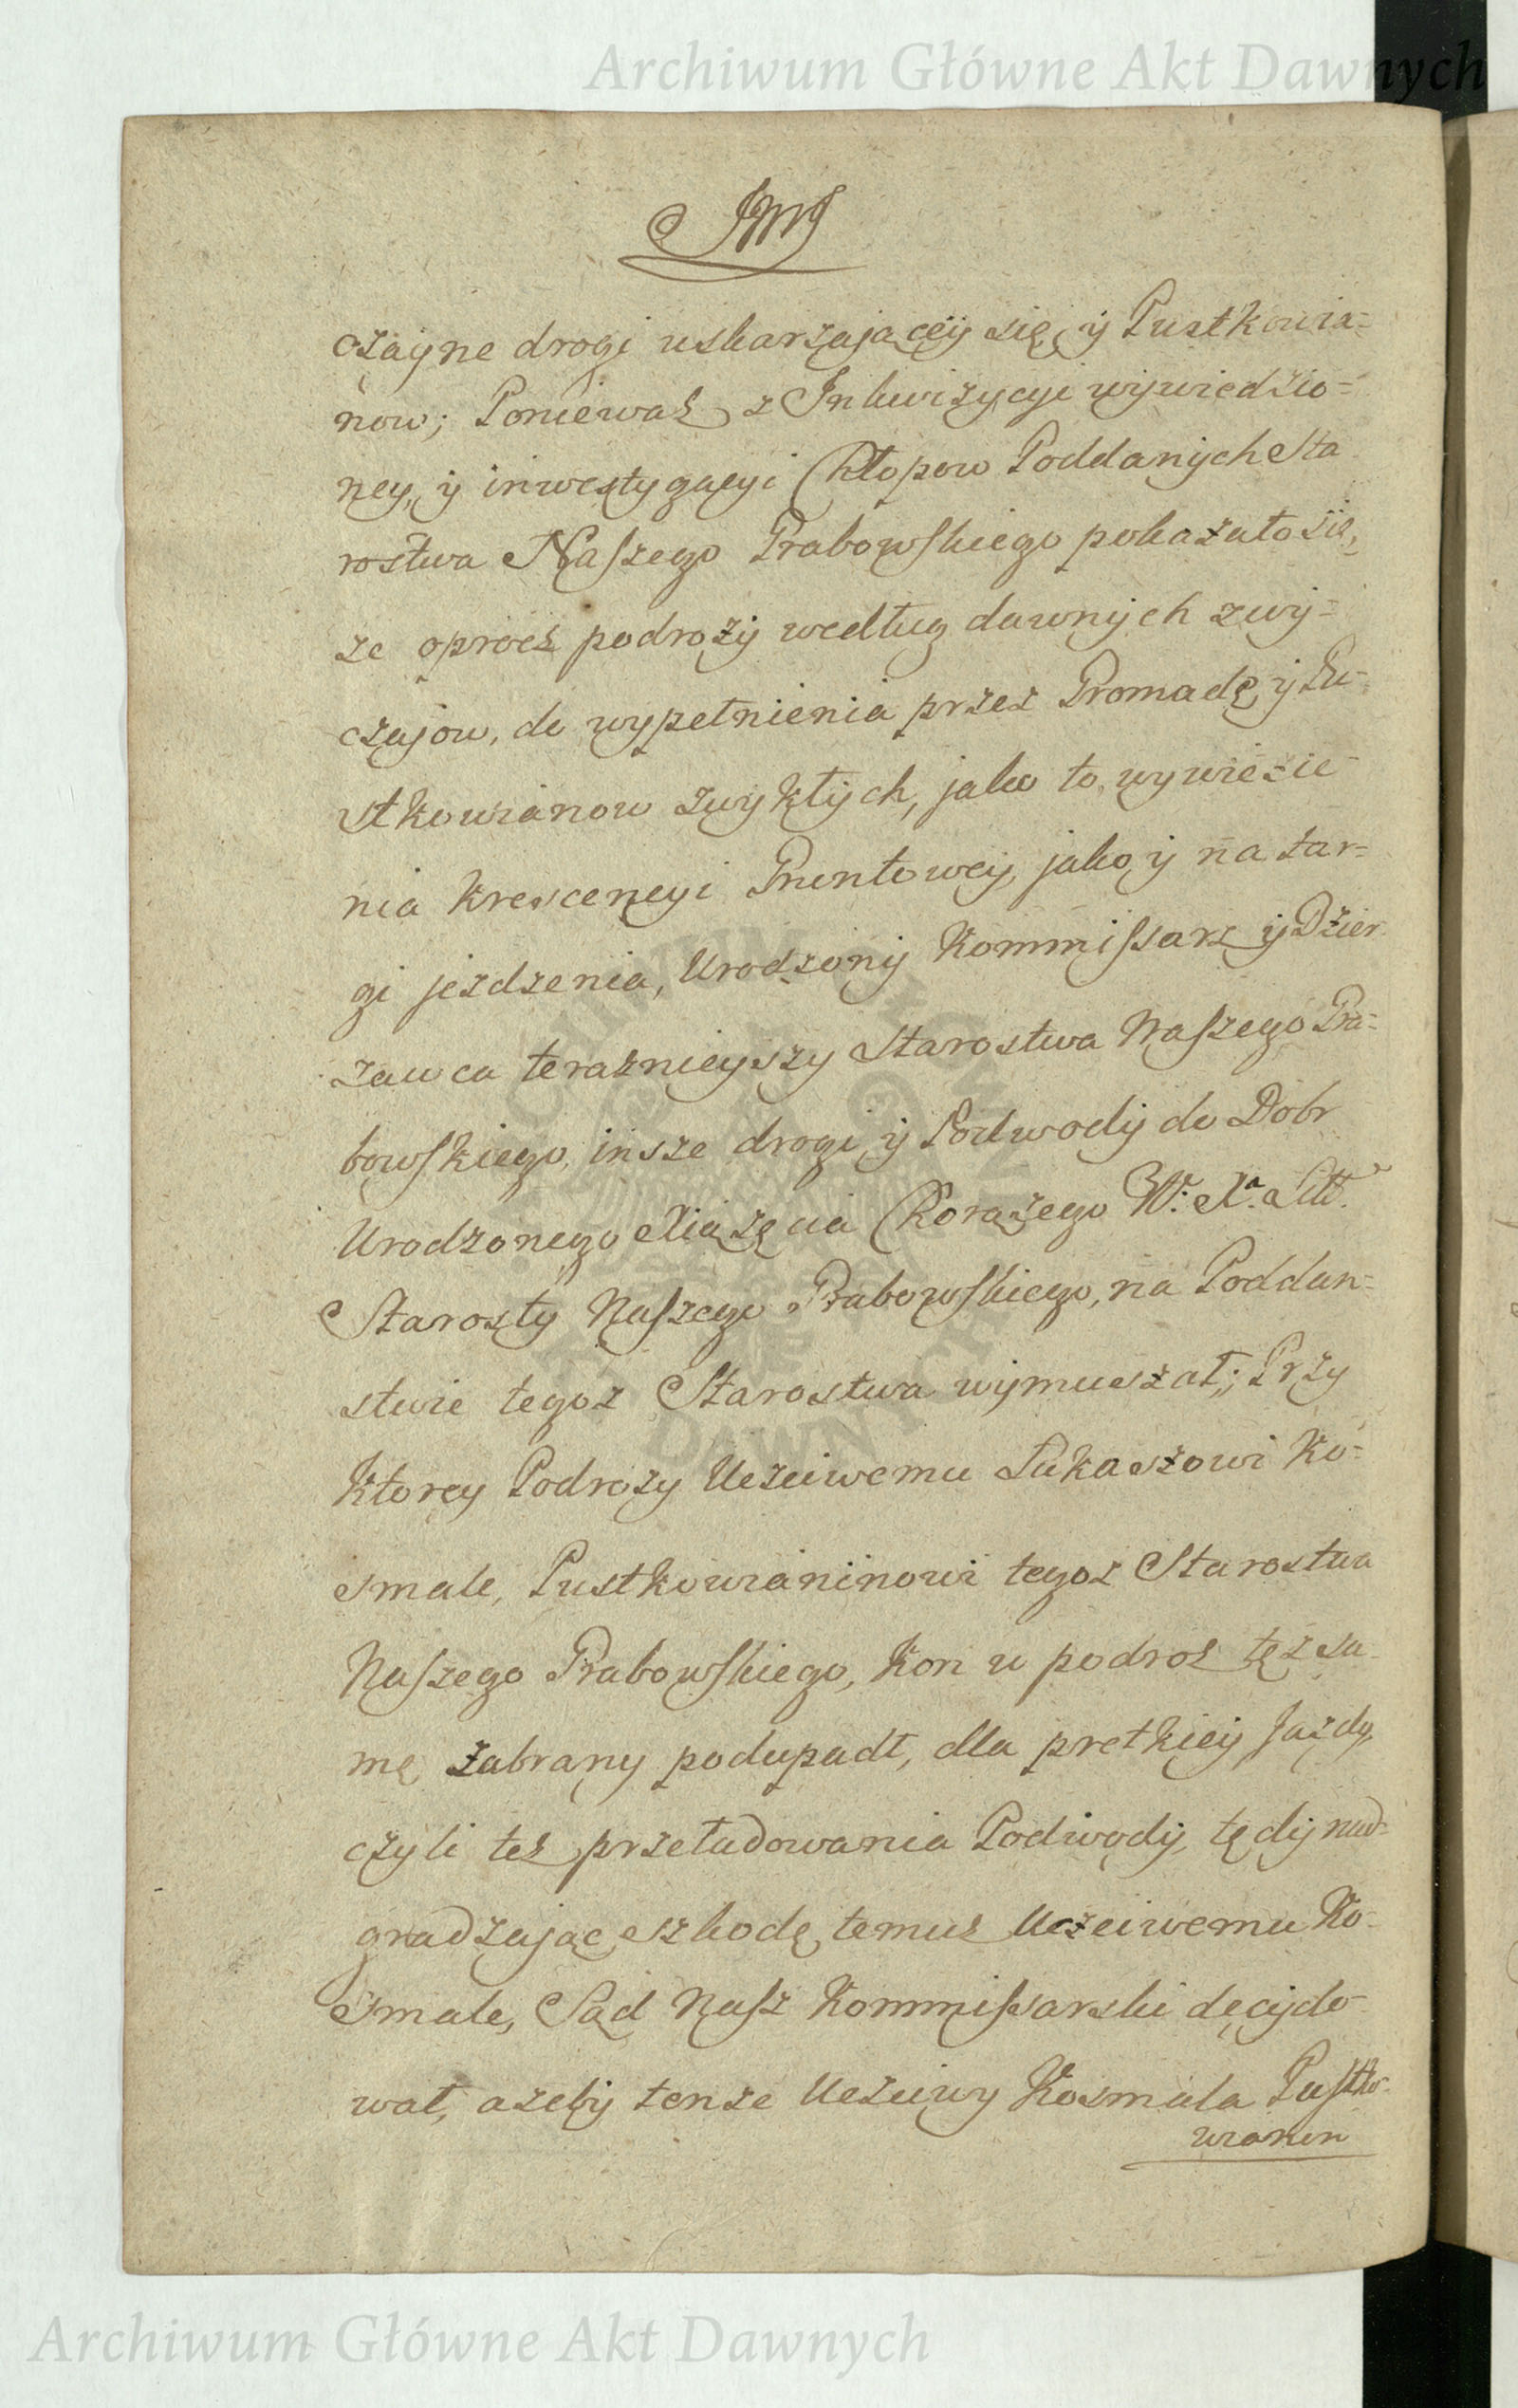 Archiwum Główne Akt Dawnych
JMJ
czayne drogi uskarzaiącey się, y Pustkowia=
now; Poniewaz z Inkwizycyi wywiedzio=
ney, y inwestygacyi Chłopow Poddanych Sta
rostwa Naszego Grabowskiego pokazało się,
ze oprocz podrozy według dawnych zwy=
czajow, do wypełnienia przez Gromadę, y Pu=
stkowianow zwykłych, jako to, wywiezie
nia Krescencyi Gruntowey, jako y na tar=
gi jezdzenia, Urodzony Kommissarz y Dzier
zawca teraznieyszy Starostwa Naszego Gra=
bowskiego, insze drogi, y Podwody do Dobr
Urodzonego Xiązęcia Chorązego W. X. Litt.
Starosty Naszego Grabowskiego, na Poddan=
stwie tegoz Starostwa wymuszał; Przy
ktorey Podrozy Uczciwemu Łukaszowi Ko=
smale, Pustkowianinowi tegoz Starostwa
Naszego Grabowskiego, Kon w podroz tęz sa
mę zabrany podupadł, dla prętkiey Jazdy,
czyli tez przeładowania Podwody, tędy nad=
gradzając szkodę temuz Uczciwemu Ko
smale, Sąd Nasz Kommissarski decydo
wał, azeby tenze Uczciwy Kosmala Pustko
wianin
Archiwum Główne Akt Dawnych